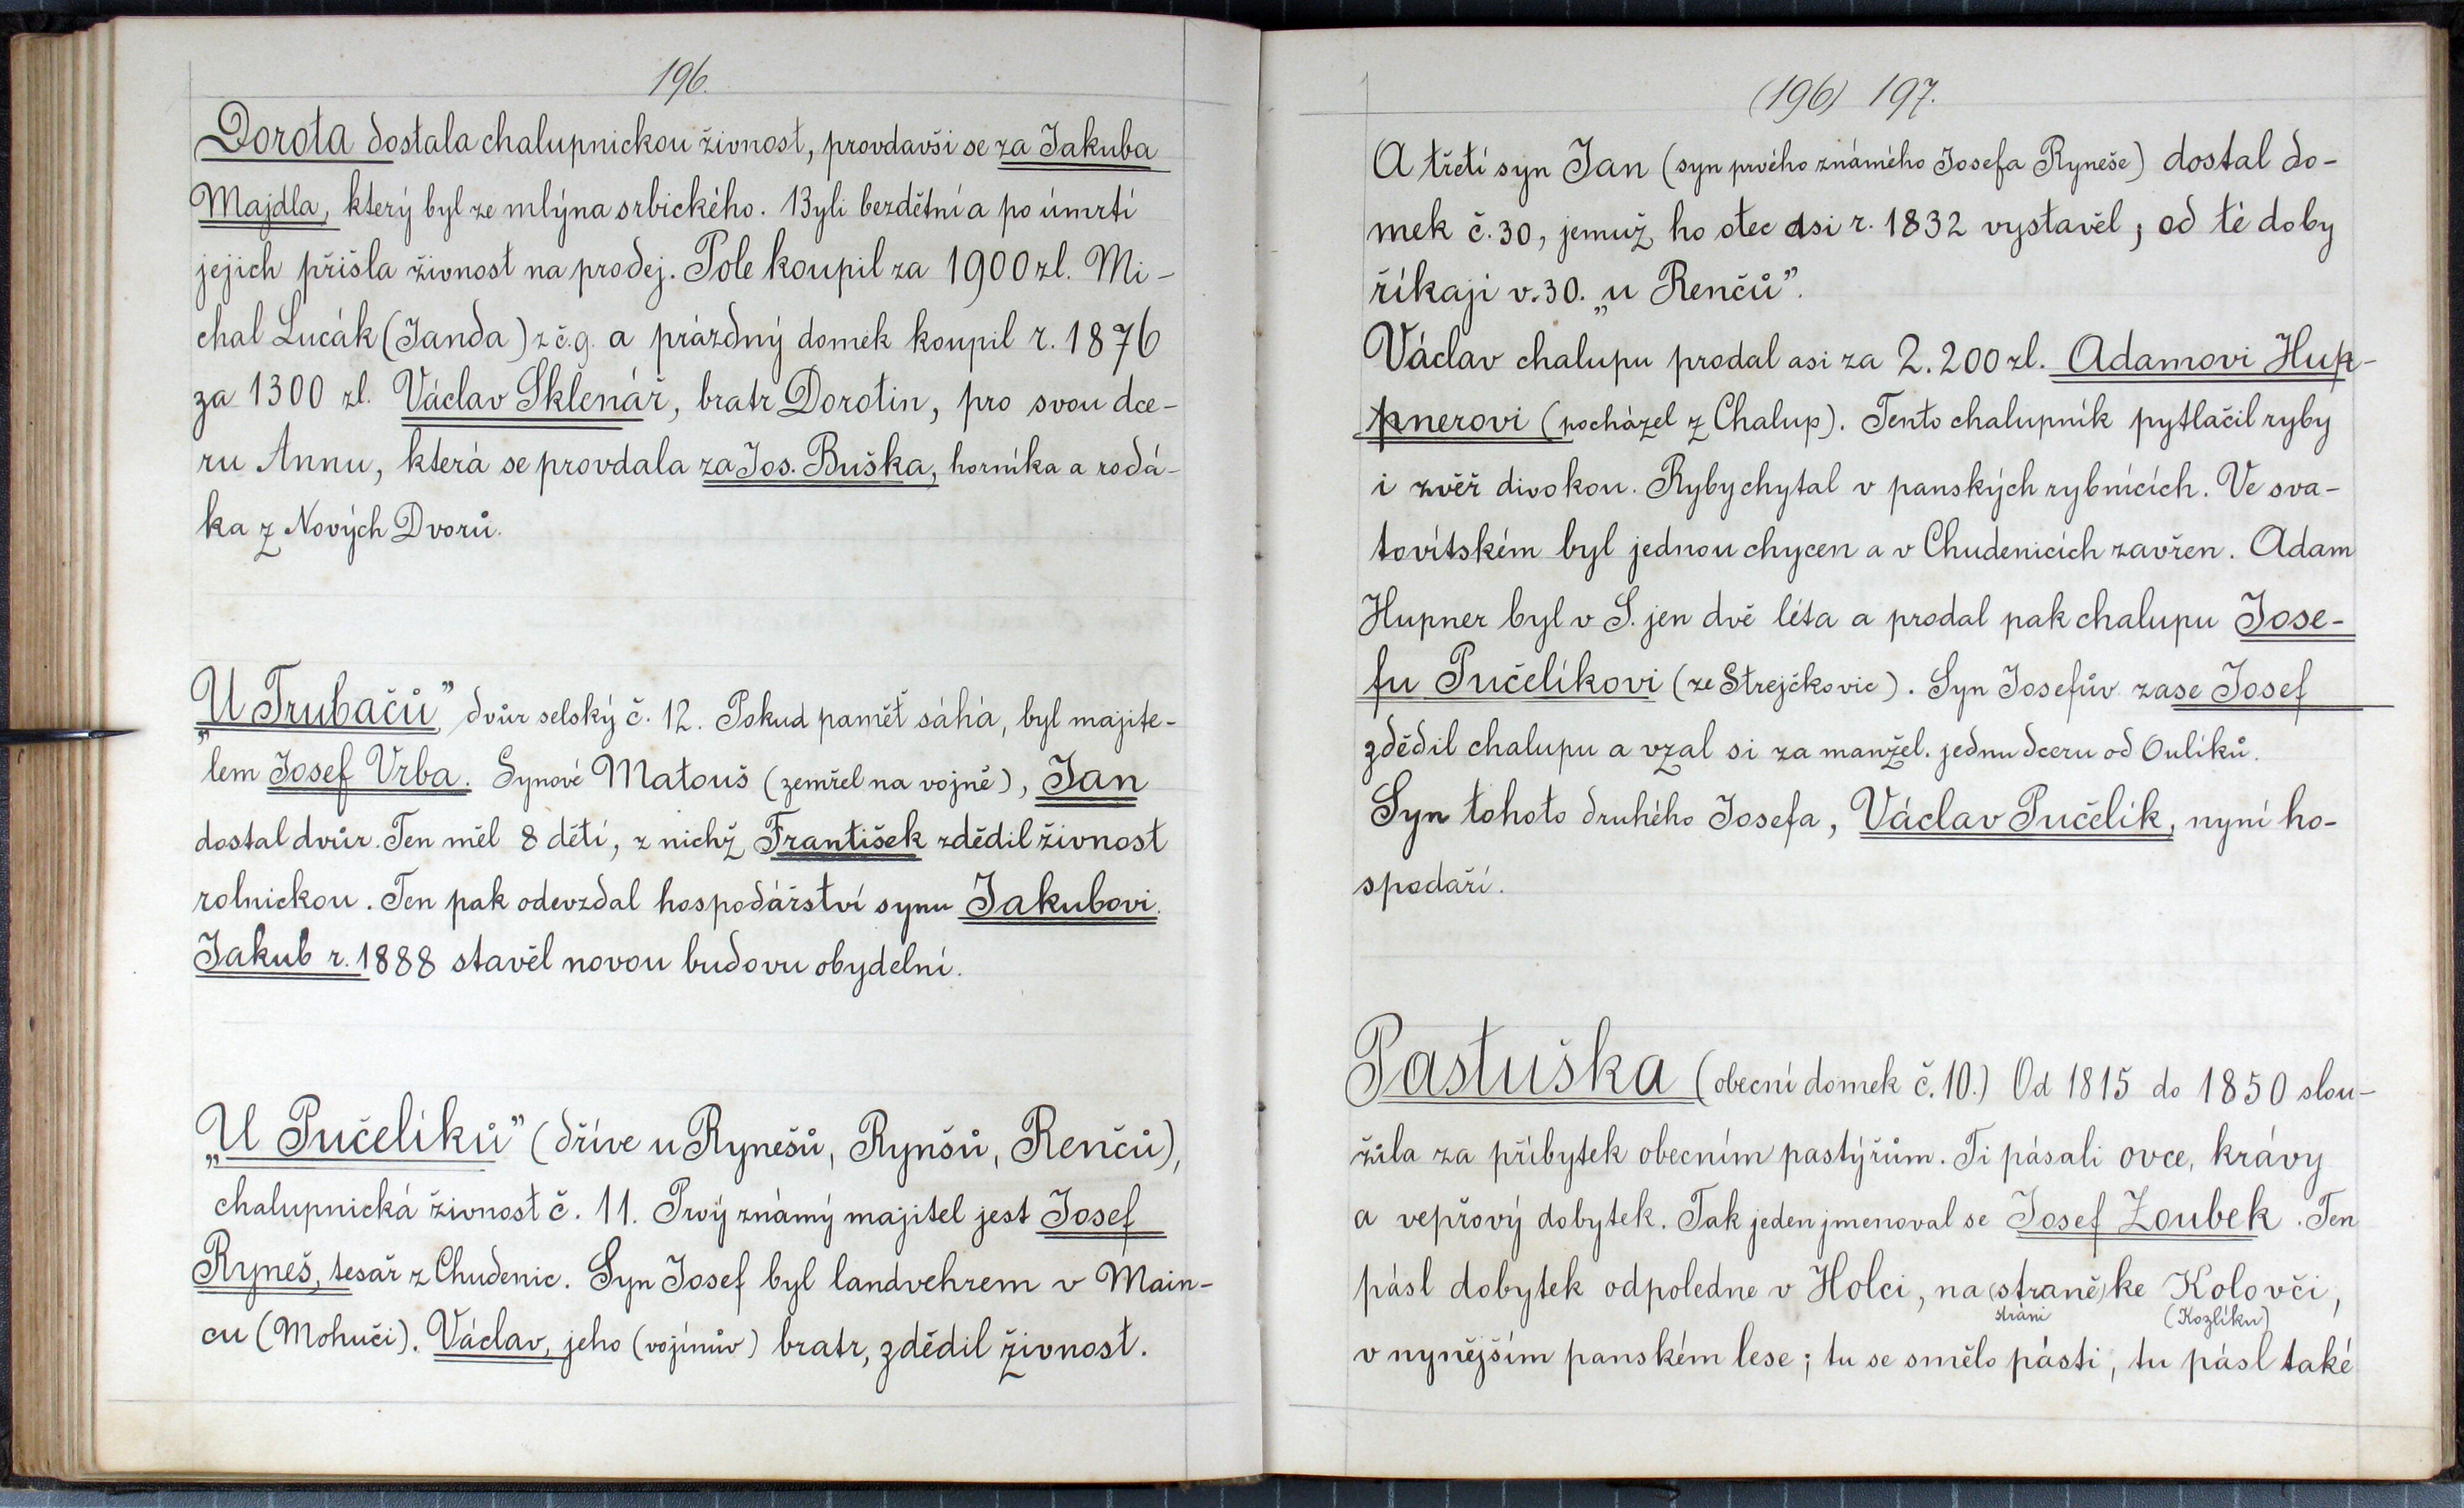 196.
Dorota dostala chalupnickou živnost, provdavši se za Jakuba
Majdla, který byl ze mlýna srbického. Byli bezdětní a po úmrtí
jejich přišla živnost na prodej. Pole koupil za 1900 zl. Mi-
chal Lucák (Janda) z č. 9. a prázdný domek koupil r. 1876
za 1300 zl. Václav Sklenář, bratr Dorotin, pro svou dce-
ru Annu, která se provdala za Jos. Buška, horníka a rodá-
ka z Nových Dvorů.
„U Trubačů" dvůr selský č. 12. Pokud paměť sáhá, byl majite-
lem Josef Vrba. Synové Matouš (zemřel na vojně), Jan
dostal dvůr. Ten měl 8 dětí, z nichž František zdědil živnost
rolnickou. Ten pak odevzdal hospodářství synu Jakubovi.
Jakub r. 1888 stavěl novou budovu obydelní.
„U Pučelíků" (dříve u Rynešů, Rynšů, Renčů),
chalupnická živnost č. 11. Prvý známý majitel jest Josef
Ryneš, tesař z Chudenic. Syn Josef byl landvehrem v Main-
cu (Mohuči). Václav, jeho (vojínův) bratr, zdědil živnost.
(196) 197.
A třetí syn Jan (syn prvého známého Josefa Ryneše) dostal do-
mek č. 30, jemuž ho otec asi r. 1832 vystavěl; od té doby
říkají v. 30. „u Renčů".
Václav chalupu prodal asi za 2.200 zl. Adamovi Hup-
pnerovi (pocházel z Chalup). Tento chalupník pytlačil ryby
i zvěř divokou. Ryby chytal v panských rybnících. Ve sva-
tovítském byl jednou chycen a v Chudenicích zavřen. Adam
Hupner byl v S. jen dvě léta a prodal pak chalupu Jose-
fu Pučelíkovi (ze Strejčkovic). Syn Josefův zase Josef
zdědil chalupu a vzal si za manžel. jednu dceru od Oulíků.
Syn tohoto druhého Josefa, Václav Pučelík, nyní ho-
spodaří.
Pastuška (obecní domek č. 10.) Od 1815 do 1850 slou-
žila za příbytek obecním pastýřům. Ti pásali ovce, krávy
a vepřový dobytek. Tak jeden jmenoval se Josef Zoubek. Ten
pásl dobytek odpoledne v Holci, na (straně) ke Kolovči,
stráni (Kozlíku)
v nynějším panském lese; tu se smělo pásti, tu pásl také